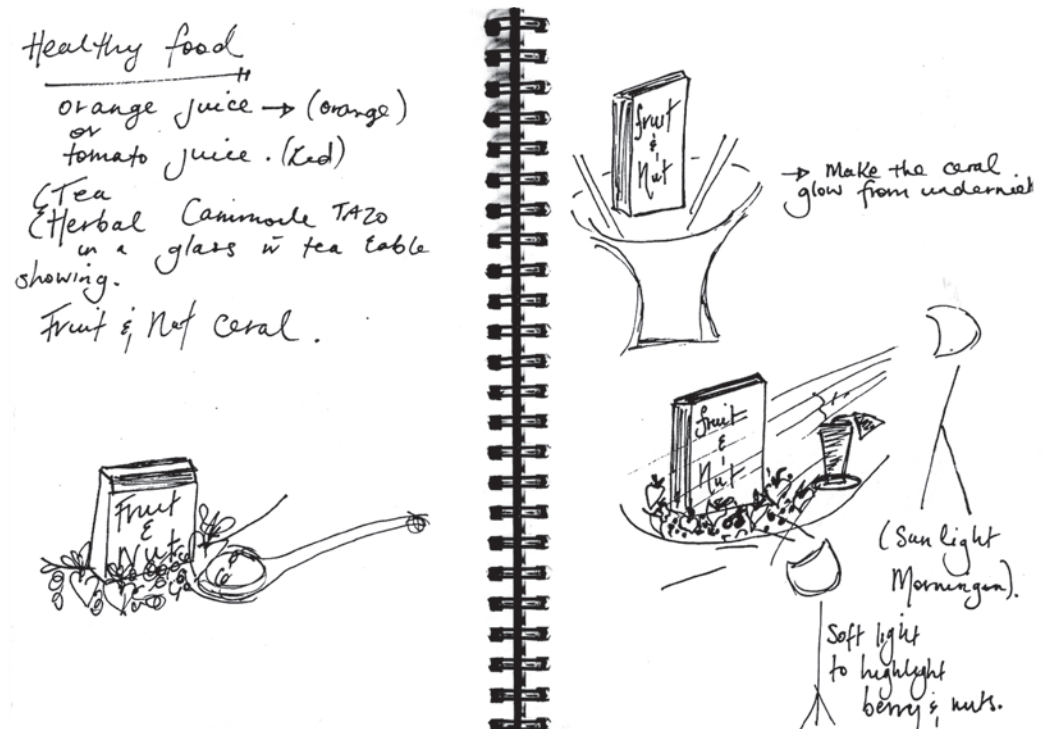 Healthy food
orange juice → (orange)
or
tomato juice. (Red)
(Tea
(Herbal Cammomile TAZO
in a glass w tea table
showing.
Fruit & Nut ceral.
Fruit
&
Nut
fruit
&
Nut
→ Make the ceral
glow from underniet
fruit
&
Nut
(Sun light
Morningin).
Soft light
to highlight
berry & nuts.